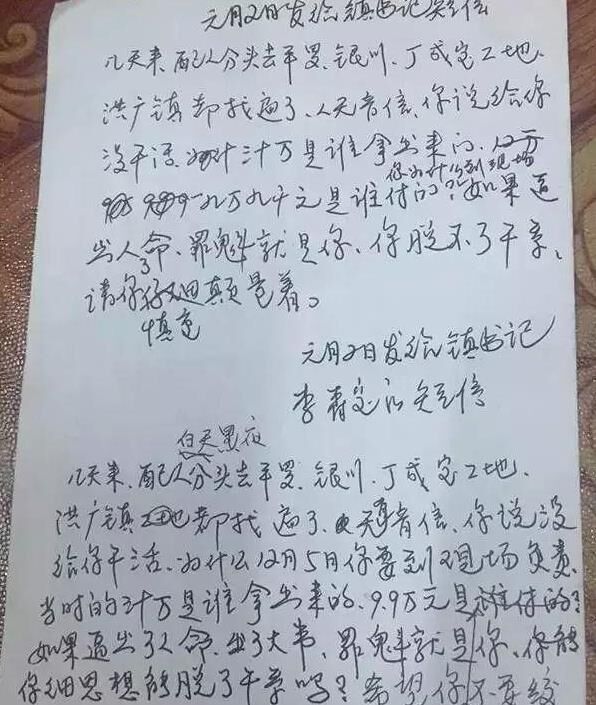 元月2日发给镇书记短信
几天来,配人分头去平罗、银川、丁成宝工地、
洪广镇都找遍了、人无音信、你说给你
没干活、为什 三十万是谁拿出来的、
你为什么到现场
九万九千元是谁付的?如果逼
出人命、罪魁就是你、你脱不了干系、
了
请你仔细 颠量着。
慎重
元月2日发给镇书记
李 宝的短信
白天黑夜
几天来、配人分头去平罗、银川、丁成宝工地、
洪广镇工地都找遍了、无音信、你说没
给你干活、为什么12月5日你要到现场负责、
当时的三十万是谁拿出来的、9.9万元是谁付的?
如果逼出了人命、出了大事、罪魁就是你、你能
仔细思想能脱了干系吗?希望你不要